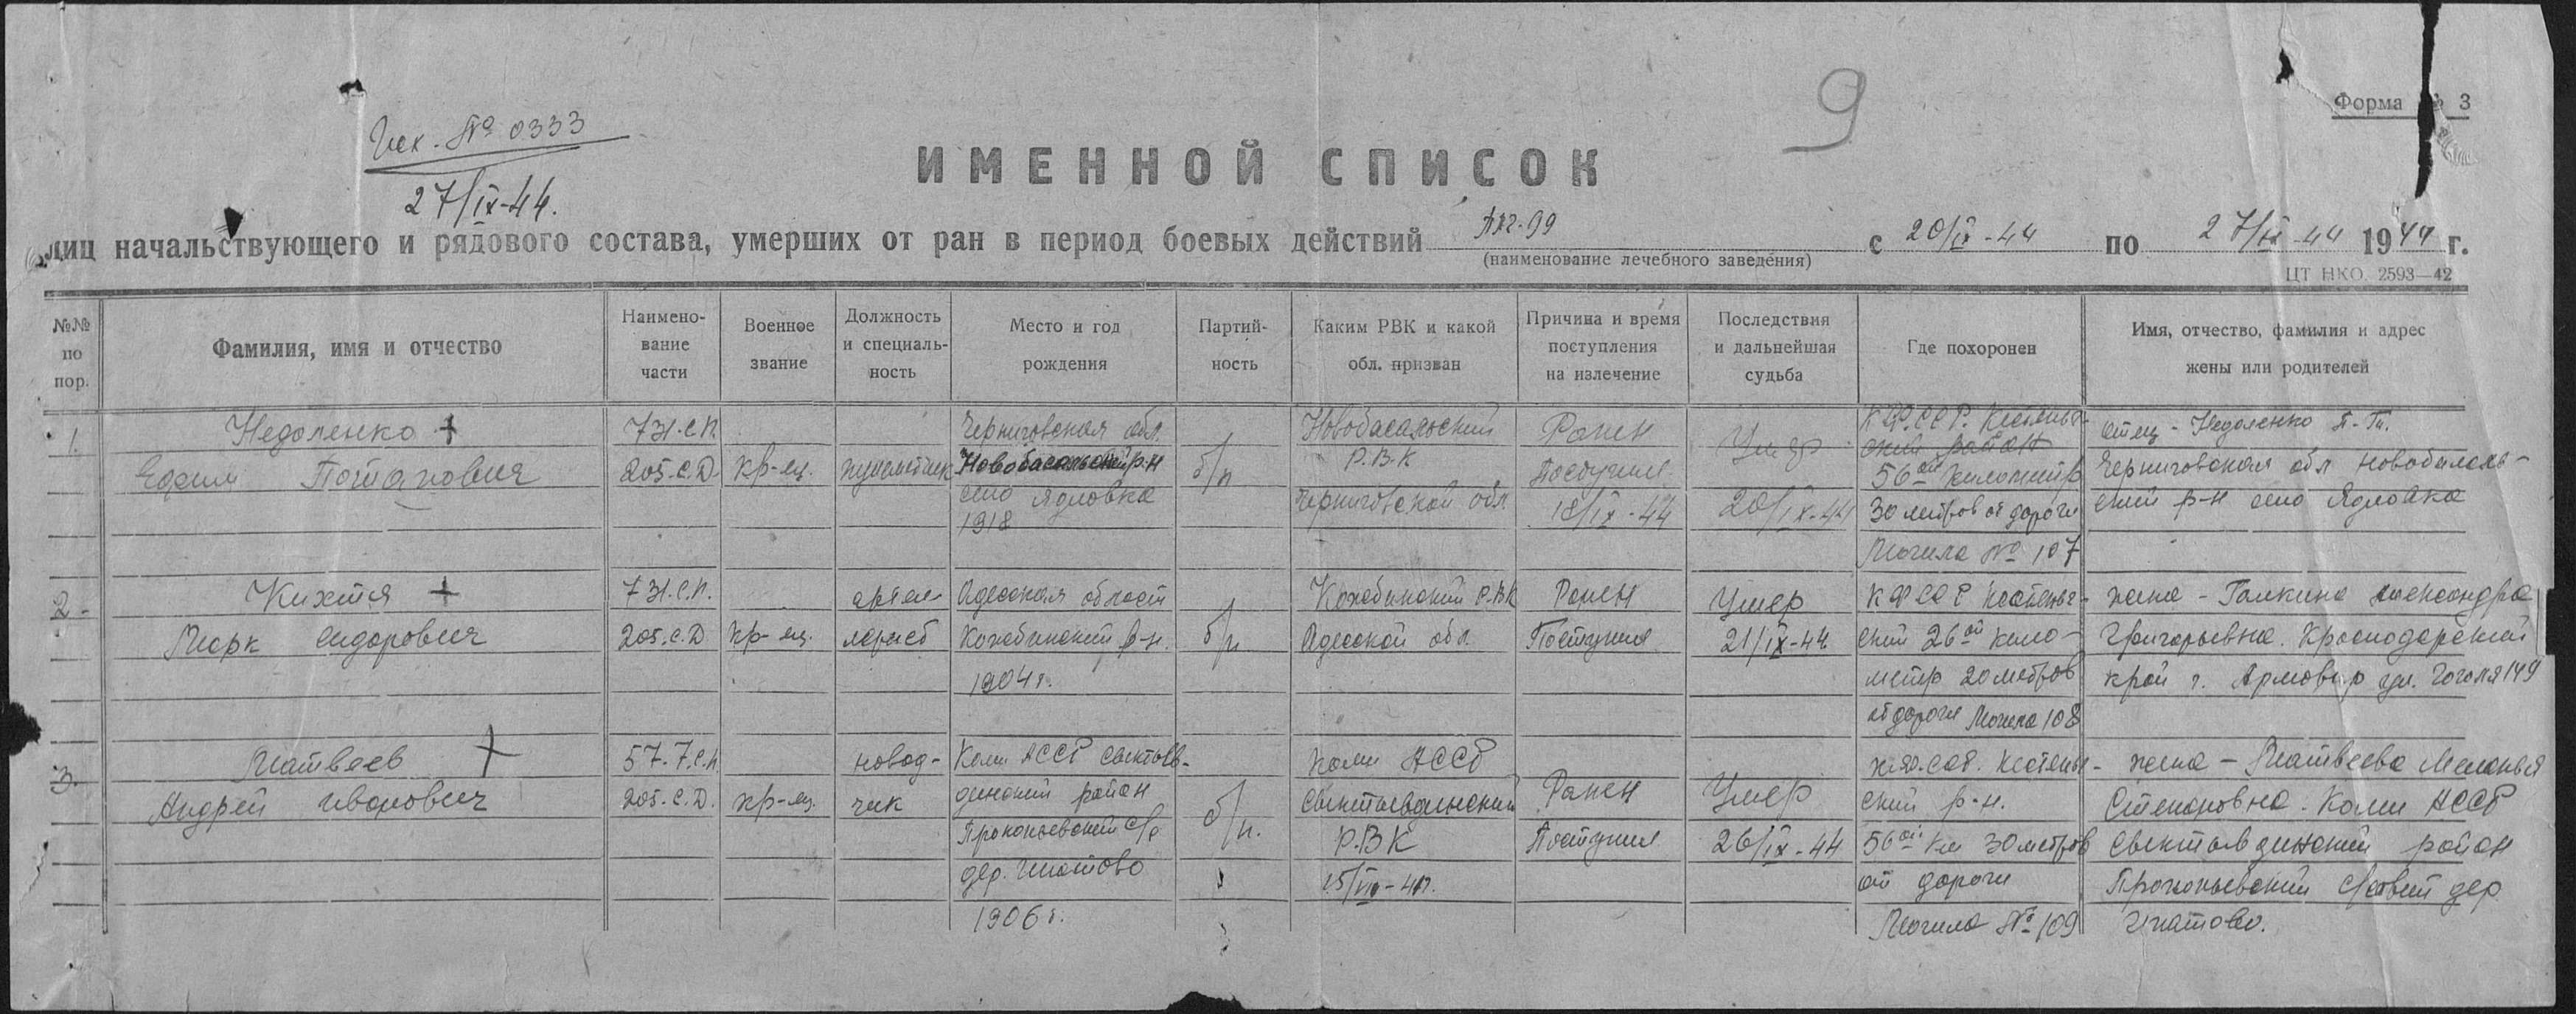 Исх. № 0333
27/IX-44.
9
Форма № 3
ИМЕННОЙ СПИСОК
лиц начальствующего и рядового состава, умерших от ран в период боевых действий ППГ-99 с 20/IX-44 по 27/IX-44 1944 г.
(наименование лечебного заведения)
ЦТ НКО. 2593—42
№№ по пор.
Фамилия, имя и отчество
Наимено-
вание
части
Военное
звание
Должность
и специаль-
ность
Место и год
рождения
Партий-
ность
Каким РВК и какой
обл. призван
Причина и время
поступления
на излечение
Последствия
и дальнейшая
судьба
Где похоронен
Имя, отчество, фамилия и адрес
жены или родителей
1.
Недоленко +
Ефим Потапович
731.С.П.
205.С.Д.
кр-ец.
Черниговская обл.
Новобасанский р-н
село Ядловка
1918
б/п
Новобасанский
Р.В.К
Черниговской обл
Ранен
Поступил
18/IX-44
Умер
20/IX-44
КФ.ССР. Кестеньг-
ский район
56ой километр
30 метров от дороги
Могила № 107
отец - Недоленко П.
Черниговская обл Новобасан-
ский р-н село Ядловка
2-
Кихтя +
Марк Сидорович
731.С.П.
205.С.Д.
кр-ец.
Одесская область
Кожебинский р-н.
1904г.
б/п
Р.ВК
Одесской обл.
Ранен
Поступил
Умер
21/IX-44
КФССР Кестеньг-
ский 26ой кило-
метр 20 метров
от дороги Могила 108
жена - Галкина Александра
Григорьевна. Краснодарский
край г. Армовир ул. Гоголя 149
3.
Матвеев +
Андрей Иванович
577.С.П.
205.С.Д.
кр-ец.
новод-
чик
Коми АССР Сыктыв-
динский район
Прокопьевский с/с
дер. Игнатово
1906г.
б/п.
Коми АССР
Сыктывдинский
Р.ВК
Ранен
Поступил
Умер
26/IX-44
Кестеньг-
ский р-н.
56ой км 30 метров
от дороги
Могила № 109
жена - Матвеева Меланья
Степановна. Коми АССР
Сыктывдинский район
Прокопьевский с/совет дер
Игнатово.